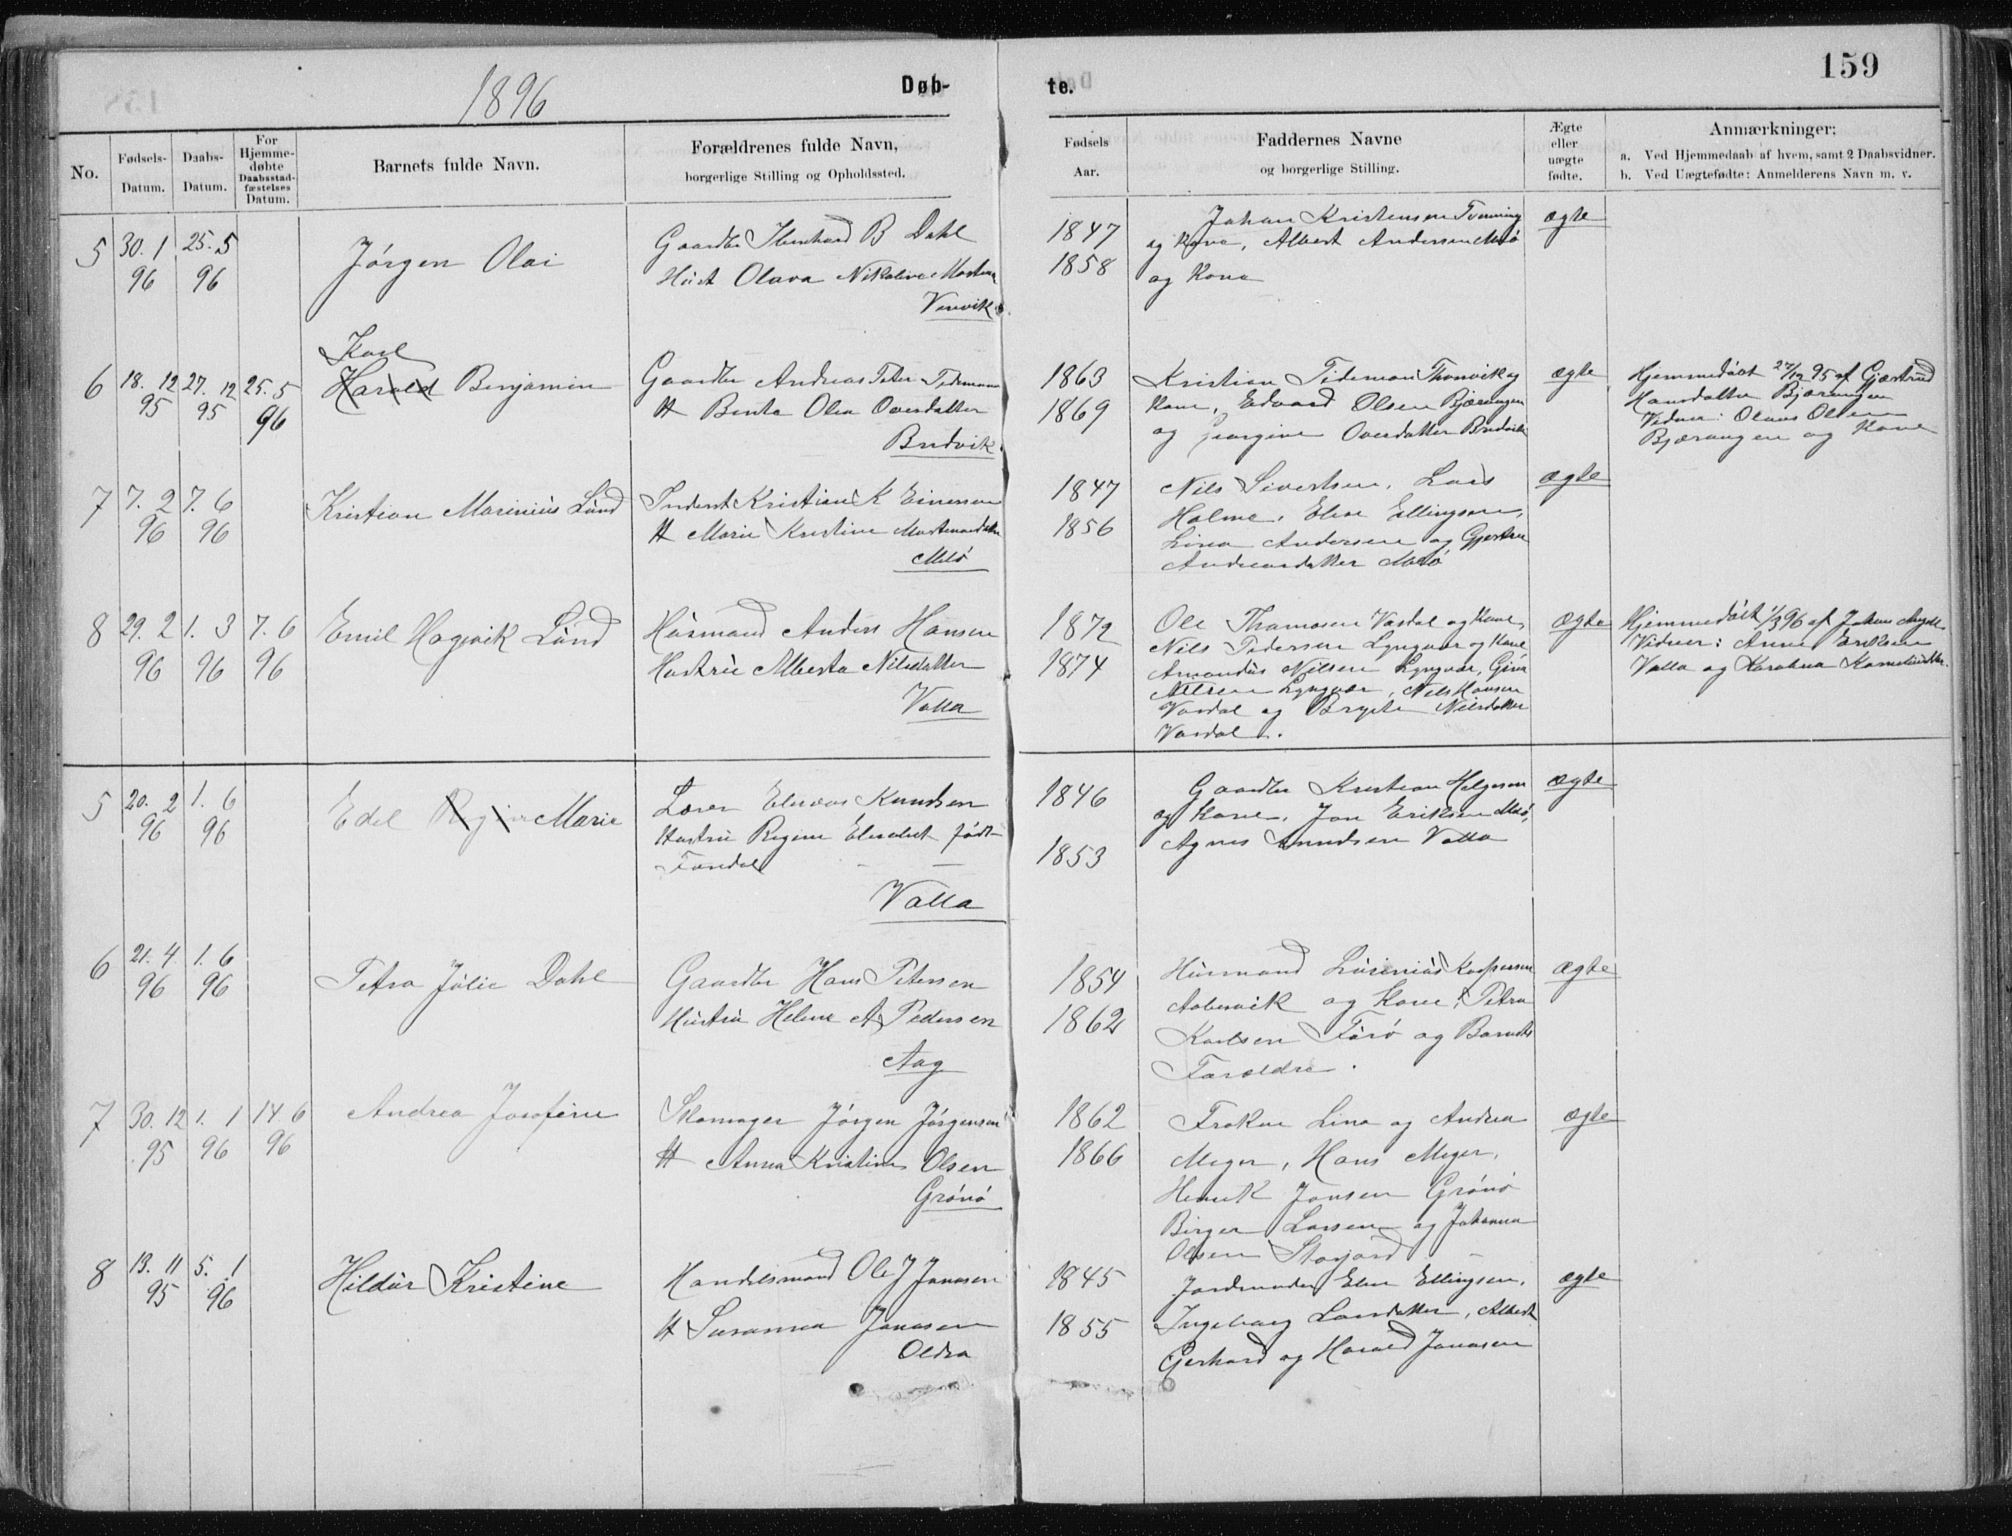 159
1896
Døb-
te.
No.
Fødsels-
Datum.
Daabs-
Datum.
For
Hjemme-
døbte
Daabsstad-
fæstelses
Datum.
Barnets fulde Navn.
Forældrenes fulde Navn,
borgerlige Stilling og Opholdssted.
Fødsels
Aar.
Faddernes Navne
og borgerlige Stilling.
Ægte
eller
uægte
fødte.
Anmærkninger:
a. Ved Hjemmedaab af hvem, samt 2 Daabsvidner.
b. Ved Uægtefødte: Anmelderens Navn m. v.
5 30.1 25.5
96 96
Jørgen Olai
Gaardbr B Dahl
Hust Olava Nikoline
1847
1858
Johan Kristensen
og Kone, Albert Andersen
og Kone
ægte
6 18.12 27.12 25.5
95 95 96
Karl
Harald Benjamin
Gaardbr Andreas Peter
H Benta Olea
Bredvik
1863
1869
Kristian Tideman
Kone, Edvard Olsen Bjærangen
og Georgine
ægte
Hjemmedøbt 27/12 95 af Gjærtrud
Hansdatter Bjærangen
Vidner: Olaus Olsen
Bjærangen og Kone
7 7.2 7.6
96 96
Kristian Marinius Lund
Inderst Kristian K Einersen
H Marie Kristine
Melø
1847
1856
Nils Sivertsen, Lars
Holme, Elen Ellingsen,
Lina Andersen og
Melø
ægte
8 29.2 1.3 7.6
96 96 96
Emil Hagevik Lund
Husmand Anders Hansen
Hustru Alberta Nilsdatter
Valla
1872
1874
Ole Thomasen Vasdal og Kone,
Nils Pedersen Lyngvær og Kone,
Amandus Nilsen Lyngvær,
Nilsen Lyngvær, Nils Hansen
Vasdal og Nilsdatter
Vasdal.
ægte
Hjemmedøbt 1/3 96 af Johan
Vidner: Anne Eriksen
Valla og
5 20.2 1.6
96 96
Edel Marie
Lærer Knudsen
Hustru Regine Elisabet født
Valla
1846
1853
Gaardbr Kristian Helgesen
og Kone, Jon Eriksen Melø,
Agnes Knudsen Valla
ægte
6 21.4 1.6
96 96
Petra Julie Dahl
Gaardbr Hans Petersen
Hustru Helene A Pedersen
Aag
1854
1862
Husmand
og Kone, Petra
Karlsen Færø og Barnets
Forældre.
ægte
7 30.12 1.1 14.6
95 96 96
Andrea Josefine
Skomager Jørgen Jørgensen
H Anna Kristine Olsen
Grønø
1862
1866
Frøken Lina og Andrea
Meyer, Hans Meyer,
Henrik Jensen Grønø
Birger Larsen og Johanna
Olsen Storjord
ægte
8 13.11 5.1
95 96
Hildur Kristine
Handelsmand Ole J Jonasen
H Susanna Jonasen
Oldra
1845
1855
Jordmoder Elen Ellingsen,
Ingeborg Larsdatter, Albert
Gerhard og Harald Jonasen
ægte